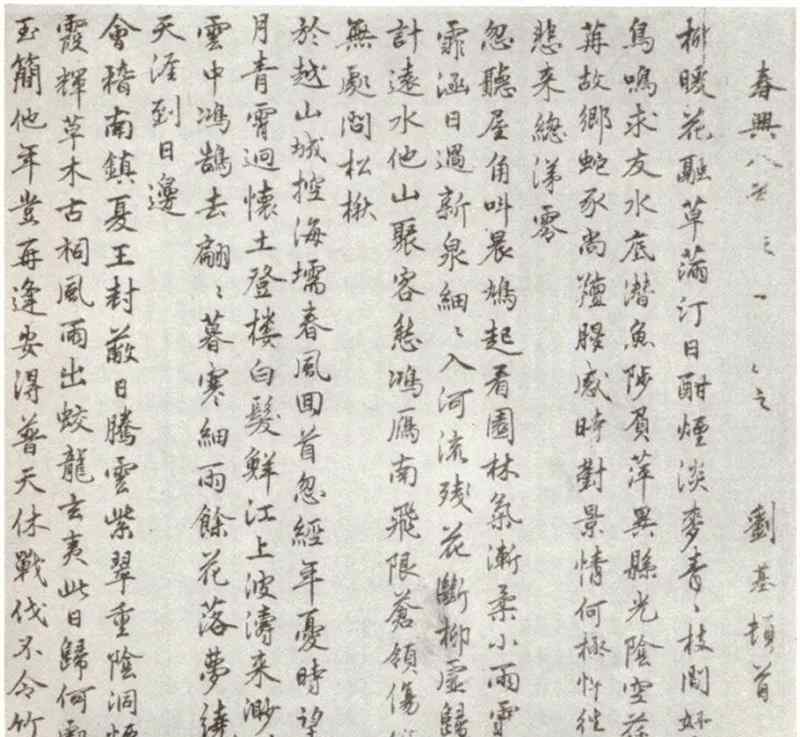 春興八首 劉基頓首
柳暖花融草滿汀日酣煙淡麥青〻枝間好
鳥鳴求友水底潛魚陟負萍異縣光陰空荏
苒故鄉蛇豕尚羶腥感時對景情何極忤徃
悲来總涕零
忽聽屋角叫晨鳩起看園林氣漸柔小雨霏
霏涵日過新泉細〻入河流殘花斷柳虛歸
計遠水他山聚客愁鴻雁南飛限蒼領傷
無處問松楸
於越山城控海壖春風回首忽經年憂時望
月青霄迥懷土登樓白髮鮮江上波濤来渺
雲中鴻鵠去翩〻暮寒細雨餘花落夢繞
天涯到日邊
會稽南鎮夏王封蔽日騰雲紫翠重陰洞煙
霞輝草木古祠風雨出蛟龍玄夷此日歸何處
玉簡他年豈再逢安得普天休戰伐不令竹